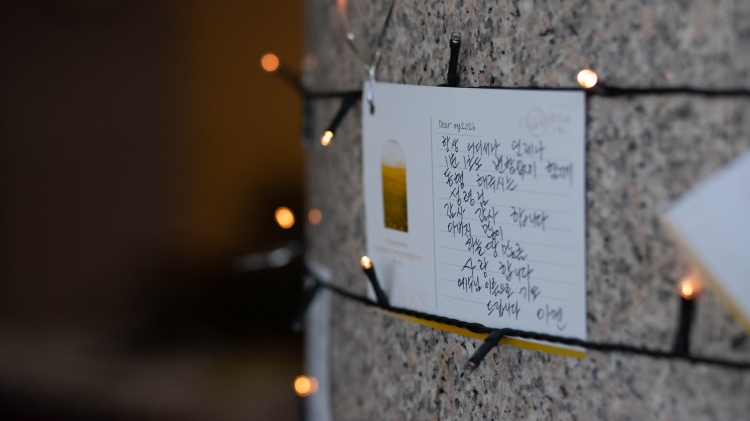 Dear my2024
항상 어디서나 언제나
1번 1초도 변함없이 함께
동행 해주시는
성령님
감사 감사 합니다
아버지 많이
하늘땅 만큼
사랑 합니다
예수님 이름으로 기도
드립니다 아멘